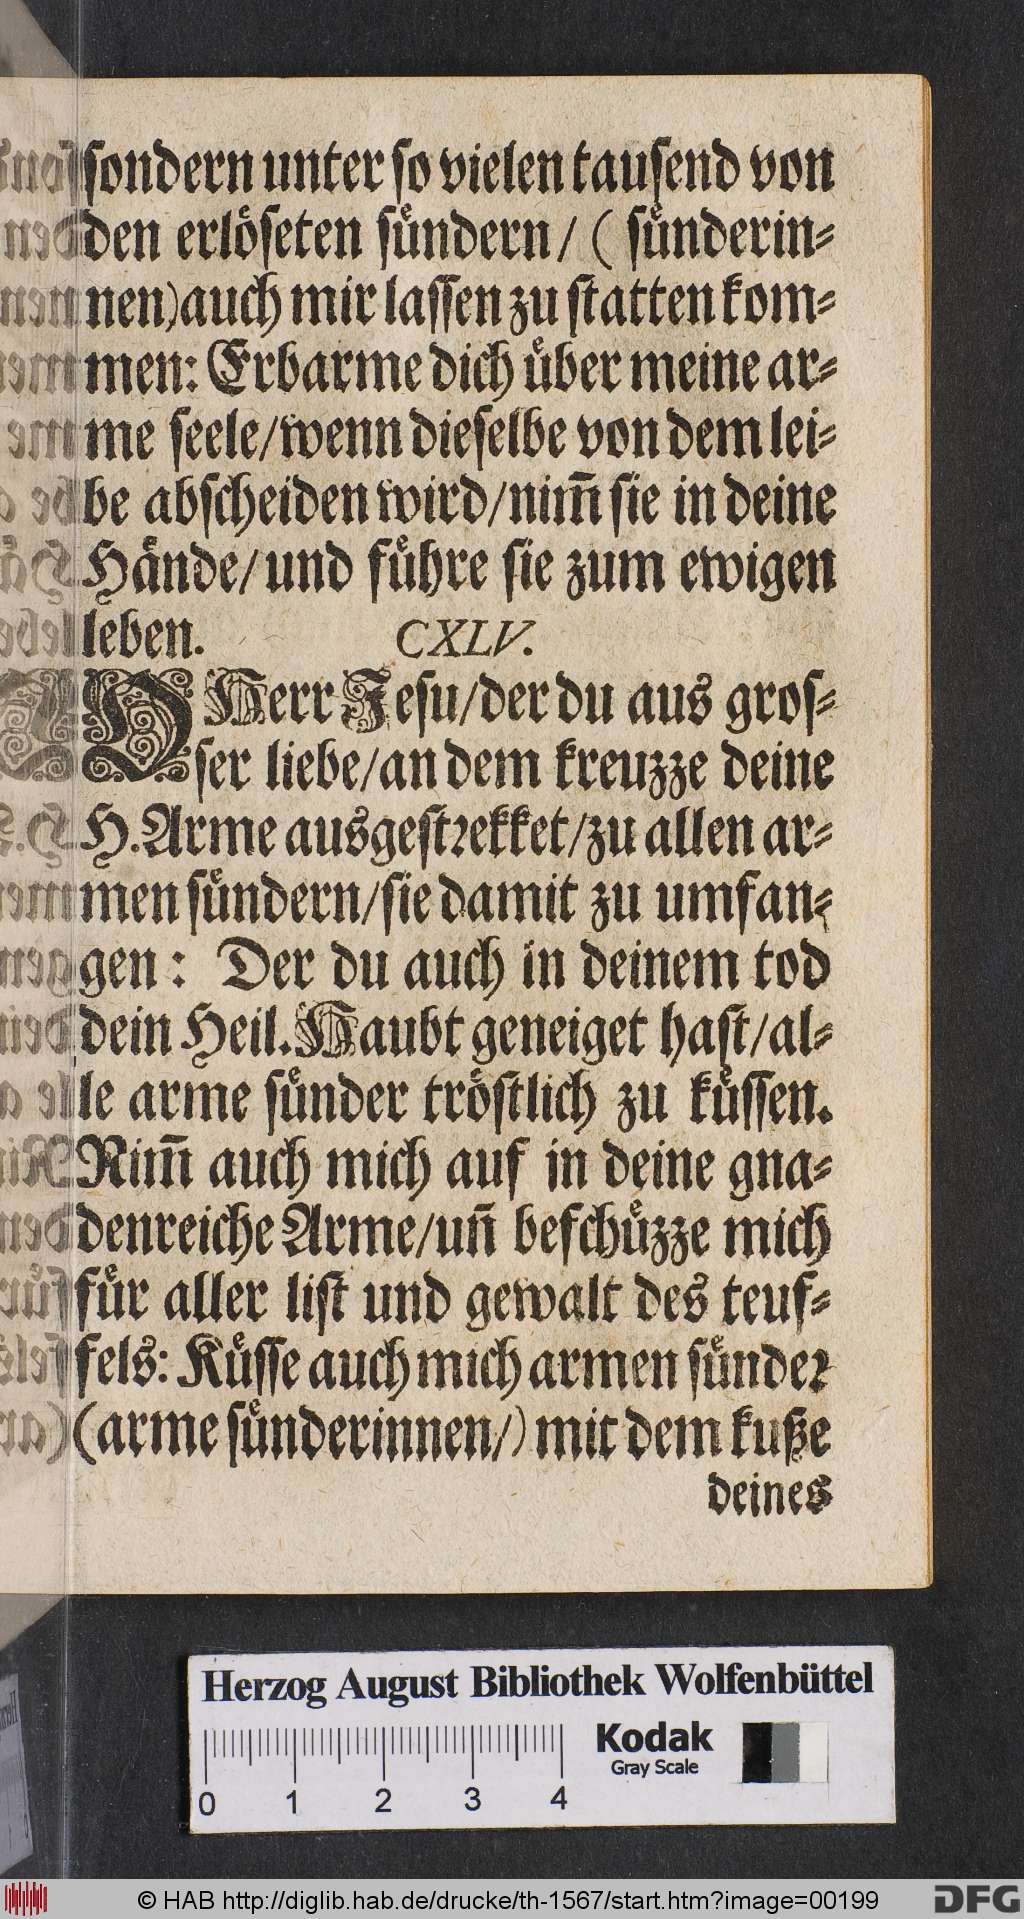 sondern unter so vielen tausend von
den erlöseten sündern / ( sünderin-
nen) auch mir lassen zu statten kom-
men: Erbarme dich über meine ar-
me seele / wenn dieselbe von dem lei-
be abscheiden wird / nim̅ sie in deine
Hände / und führe sie zum ewigen
leben. CXLV.
O Herr Jesu / der du aus gros-
ser liebe / an dem kreuzze deine
H. Arme ausgestrekket / zu allen ar-
men sündern / sie damit zu umfan-
gen : Der du auch in deinem tod
dein Heil. Haubt geneiget hast / al-
le arme sünder tröstlich zu küssen.
Nim̅ auch mich auf in deine gna-
denreiche Arme / un̅ beschüzze mich
für aller list und gewalt des teuf-
fels: Küsse auch mich armen sünder
(arme sünderinnen /) mit dem kuße
deines
Herzog August Bibliothek Wolfenbüttel
Kodak
Gray Scale
0 1 2 3 4
© HAB http://diglib.hab.de/drucke/th-1567/start.htm?image=00199
DFG